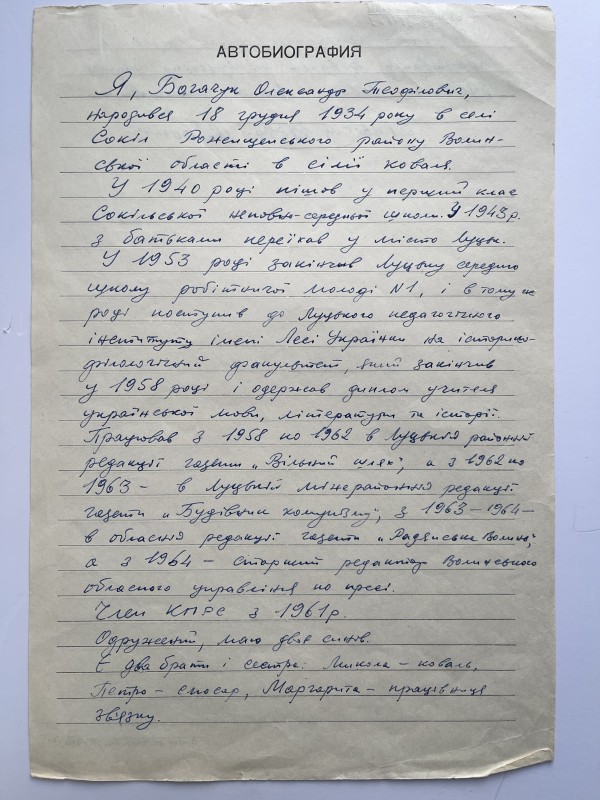 АВТОБИОГРАФИЯ
Я, Богачук Олександр Теофілович,
народився 18 грудня 1934 року в селі
Сокіл Рожищенського району Волин-
ської області в сім'ї коваля.
У 1940 році пішов у перший клас
Сокільської неповн-середньої школи. У 1943 р.
з батьками переїхав у місто Луцьк.
У 1953 році закінчив Луцьку середню
школу робітничої молоді N1, і в тому ж
році поступив до Луцького педагогічного
інституту імені Лесі Українки на історико-
філологічний факультет, який закінчив
у 1958 році і одержав диплом учителя
української мови, літератури та історії.
Працював з 1958 по 1962 в Луцькій районній
редакції газети „Вільний шлях", а з 1962 по
1963 - в Луцькій міжрайонній редакції
газети „Будівник комунізму", з 1963 - 1964 -
в обласній редакції газети „Радянська Волинь",
а з 1964 - старший редактор Волинського
обласного управління по пресі.
Член КПРС з 1961 р.
Одружений, маю двоє синів.
Є два брати і сестра: Микола - коваль,
Петро - слюсар, Маргарита - працівниця
зв'язку.